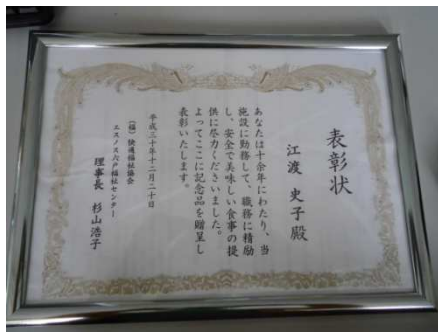 表彰状
江渡 史子殿
あなたは十余年にわたり、当
施設に勤務して、職務に精励
し、安全で美味しい食事の提
供に尽力くださいました。
よってここに記念品を贈呈し
表彰いたします。
平成三十年十二月二十日
(福)快適福祉協会
エスノス六戸福祉センター
理事長 杉山浩子